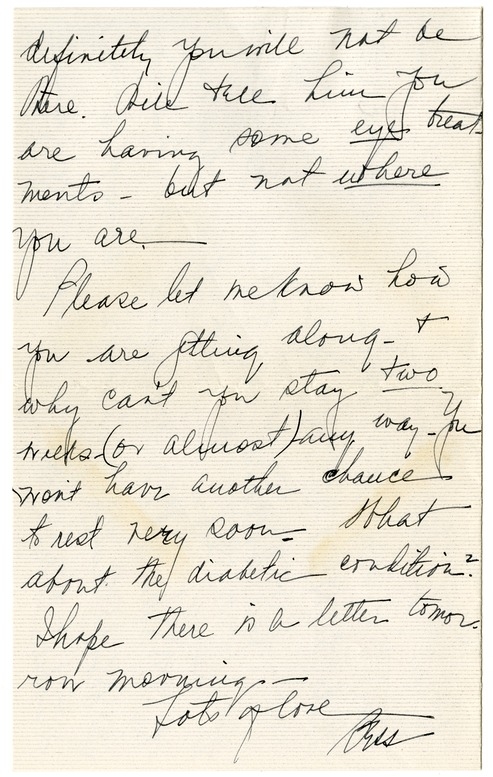 definitely you will not be
there. Will tell him you
are having some eye treat-
ments - but not where
you are.
Please let me know how
you are getting along - +
why can't you stay two
weeks - (or almost) any way - You
won't have another chance
to rest very soon - What
about the diabetic condition?
I hope there is a letter tomor-
row morning -
Lots of love